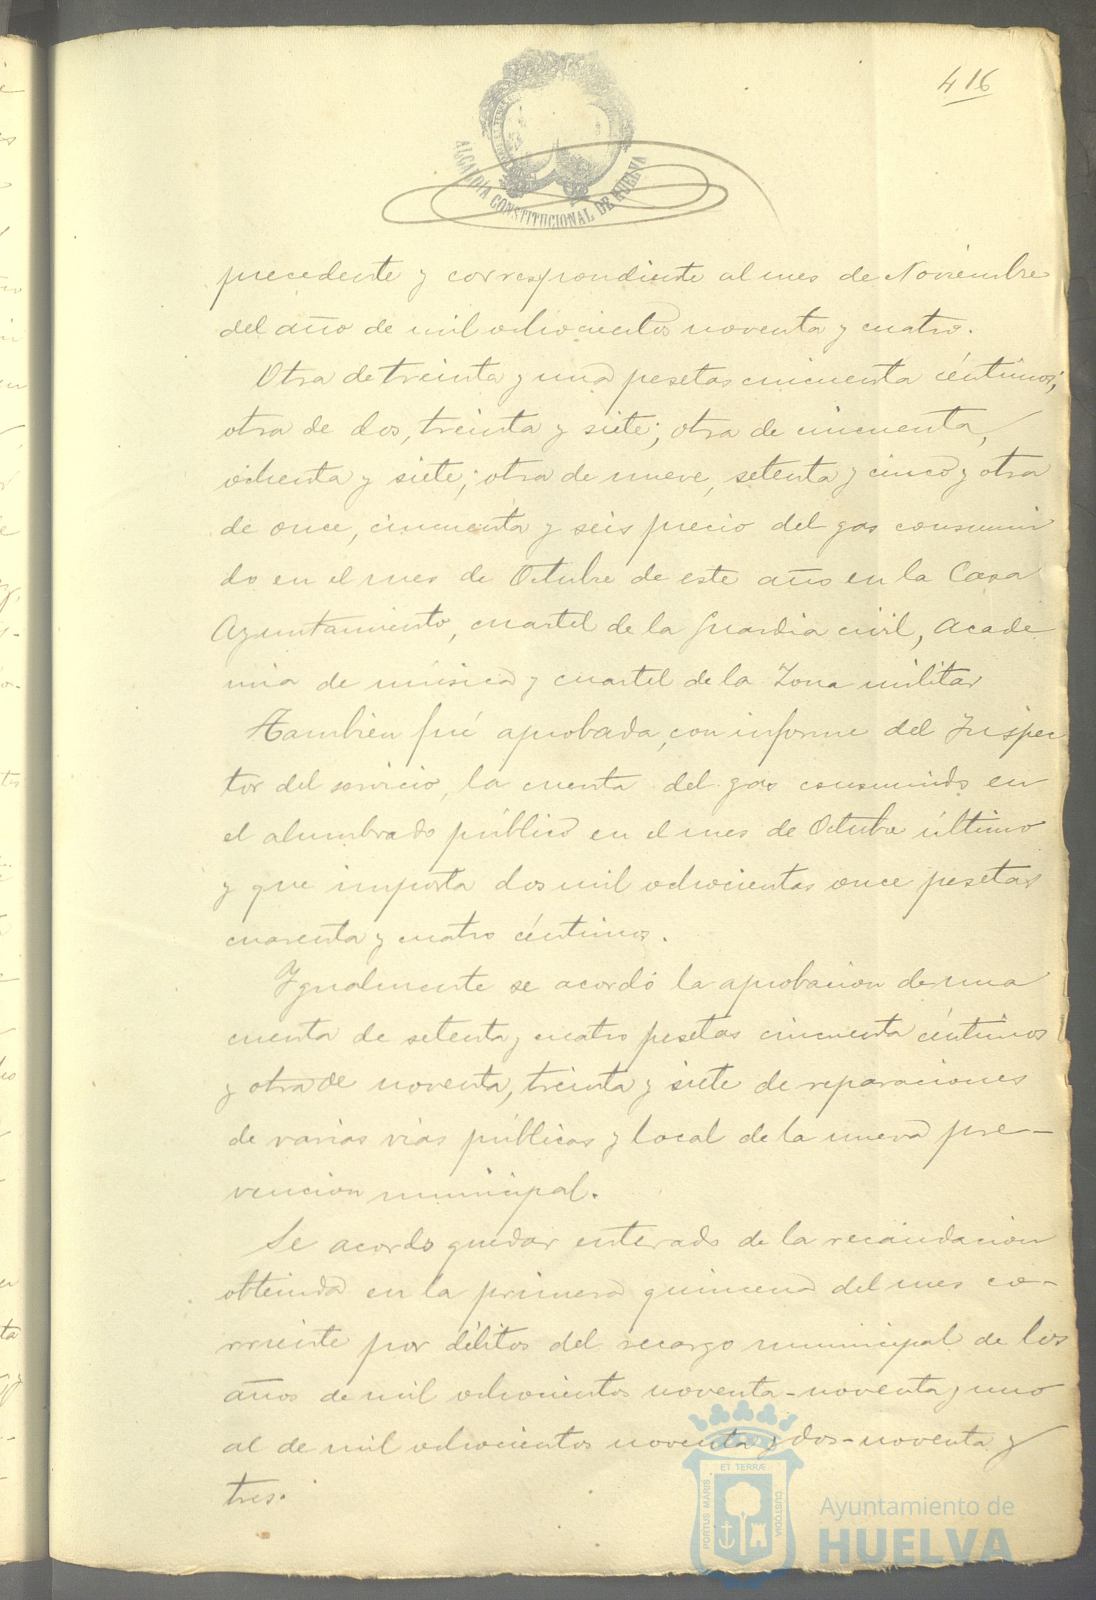 416
ALCALDIA CONSTITUCIONAL DE HUELVA
precedente y correspondiente al mes de Noviembre
del año de mil ochocientos noventa y cuatro.
Otra de treinta y una pesetas cincuenta céntimos;
otra de dos, treinta y siete; otra de cincuenta,
ochenta y siete; otra de nueve, setenta y cinco y otra
de once, cincuenta y seis precio del gas consumi
do en el mes de Octubre de este año en la Casa
Ayuntamiento, cuartel de la Guardia civil, Acade
mia de música y cuartel de la Zona militar
Tambien fué aprobada, con informe del Inspec
tor del servicio, la cuenta del gas consumido en
el alumbrado público en el mes de Octubre último
y que importa dos mil ochocientas once pesetas
cuarenta y cuatro céntimos.
Igualmente se acordó la aprobacion de una
cuenta de setenta y cuatro pesetas cincuenta céntimos
y otra de noventa, treinta y siete de reparaciones
de varias vias públicas y local de la nueva pre-
vencion municipal.
Se acordo quedar enterado de la recaudacion
obtenida en la primera quincena del mes co-
rriente por débitos del recargo municipal de los
años de mil ochocientos noventa-noventa y uno
al de mil ochocientos noventa y dos-noventa y
tres.
PORTUS MARIS ET TERRÆ CUSTODIA
Ayuntamiento de
HUELVA